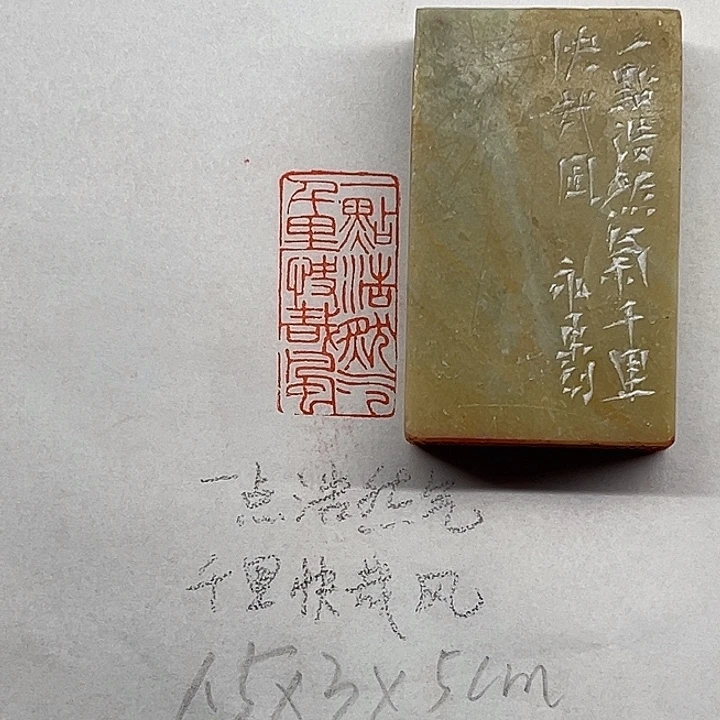 一點浩然气
千里快哉風
一點浩然氣千里
快哉風
永刻
一点浩然气
千里快哉风
1.5x3x5cm